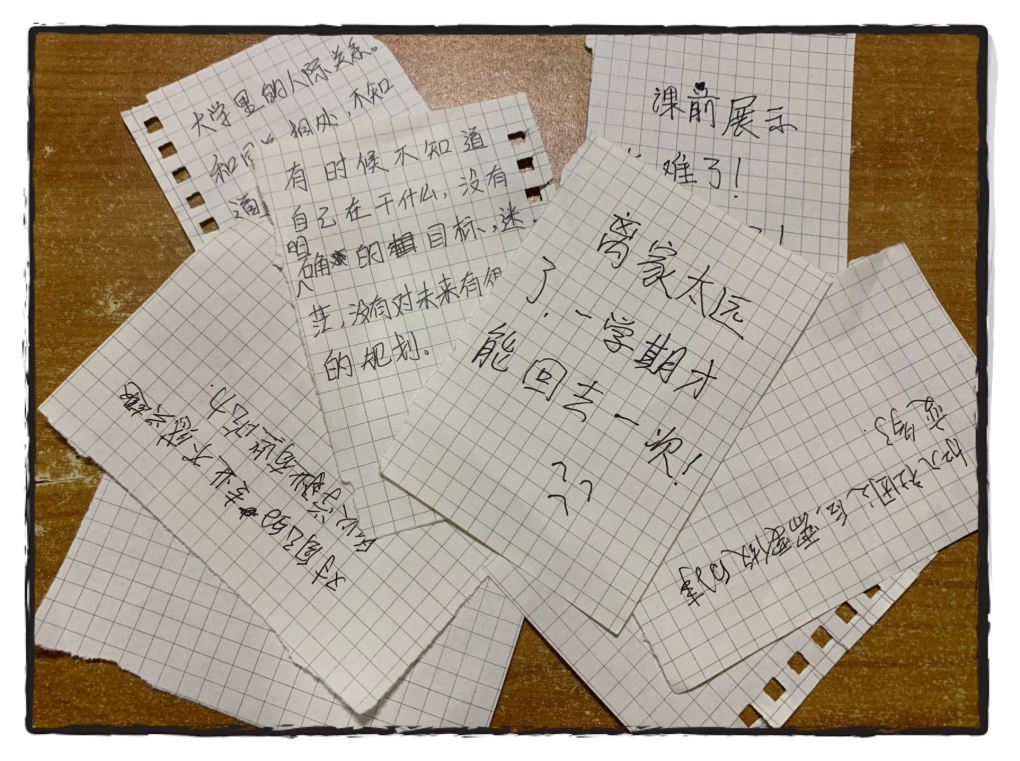 大学里的人际关系。
和同 相处,不知
道
有时候不知道
自己在干什么,没有
明确的目标,迷
茫,没有对未来有很
的规划。
课前展示
难了!
离家太远
了.一学期才
能回去一次!
对自己的专业不感兴趣
所以学习
加入社团之后,需要做的事
变多了.